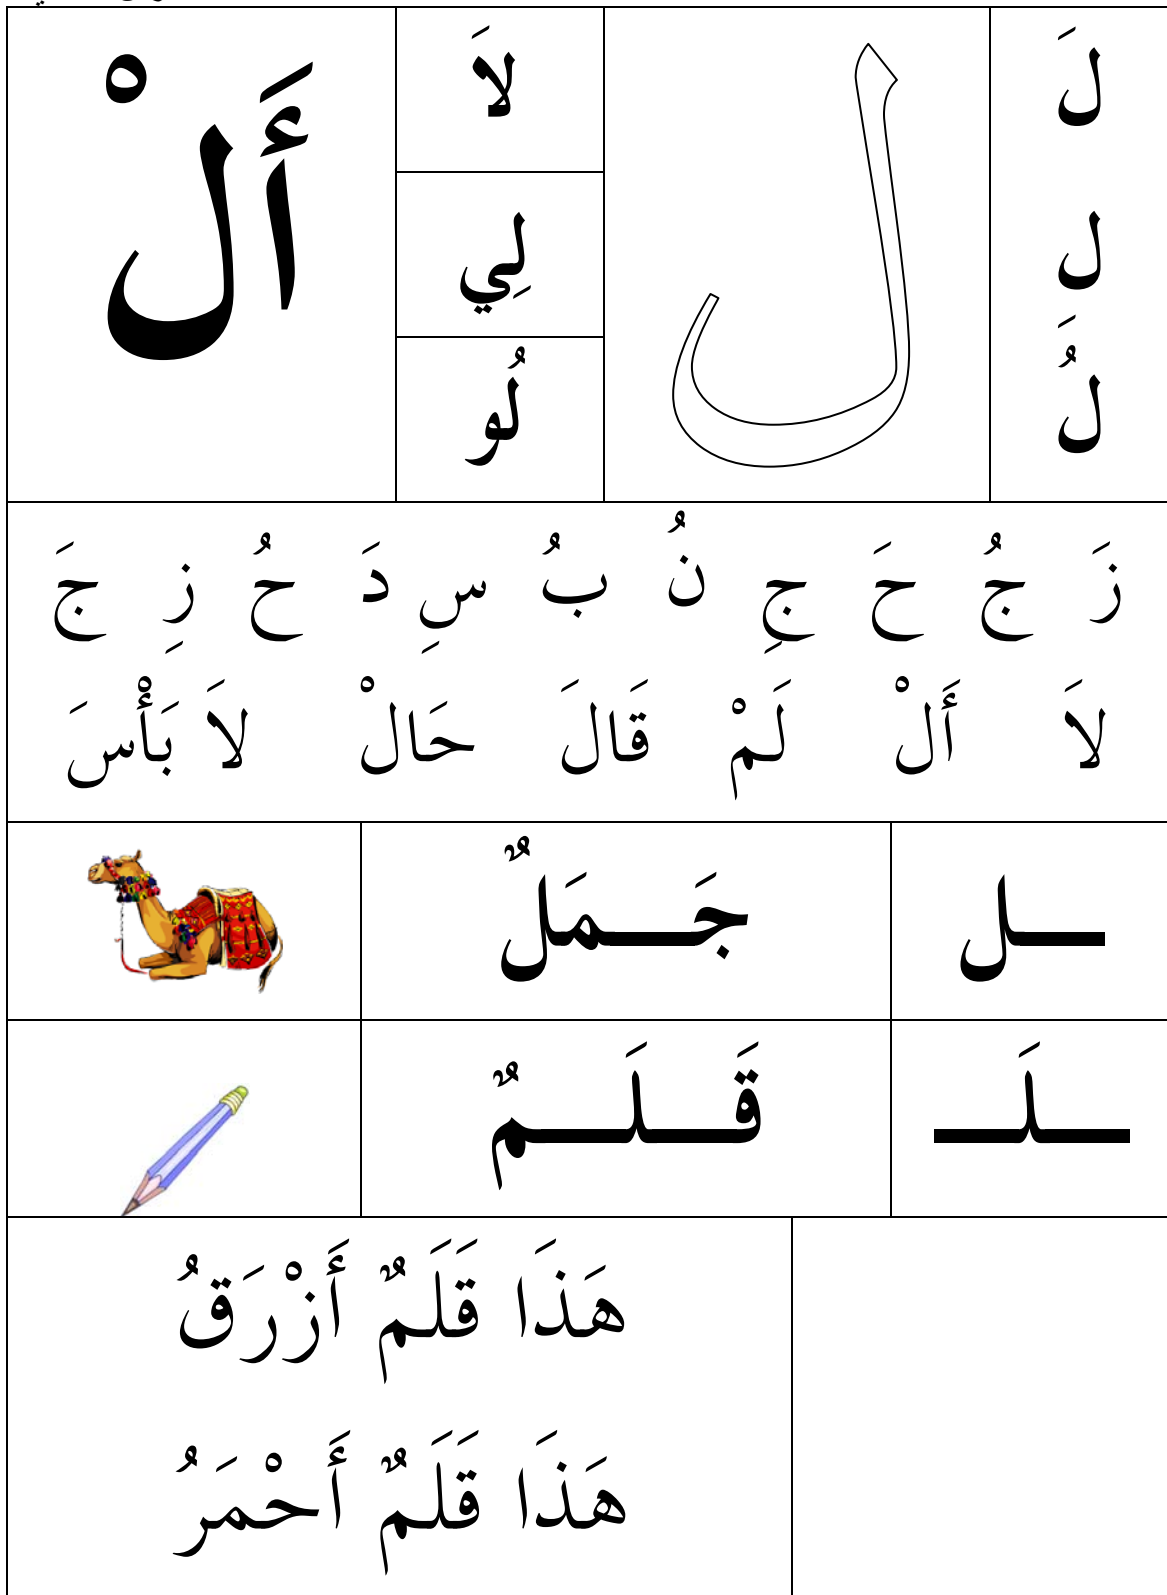 لَ
لِ
لُ
ل
لاَ
لِي
لُو
أَلْ
زَ جُ حَ جِ نُ بُ سِ دَ حُ زِ جَ
لاَ أَلْ لَمْ قَالَ حَالْ لاَ بَأْسَ
ـــل
جَـــمَلٌ
ـــلَـــ
قَـــلَـــمٌ
هَذَا قَلَمٌ أَزْرَقُ
هَذَا قَلَمٌ أَحْمَرُ